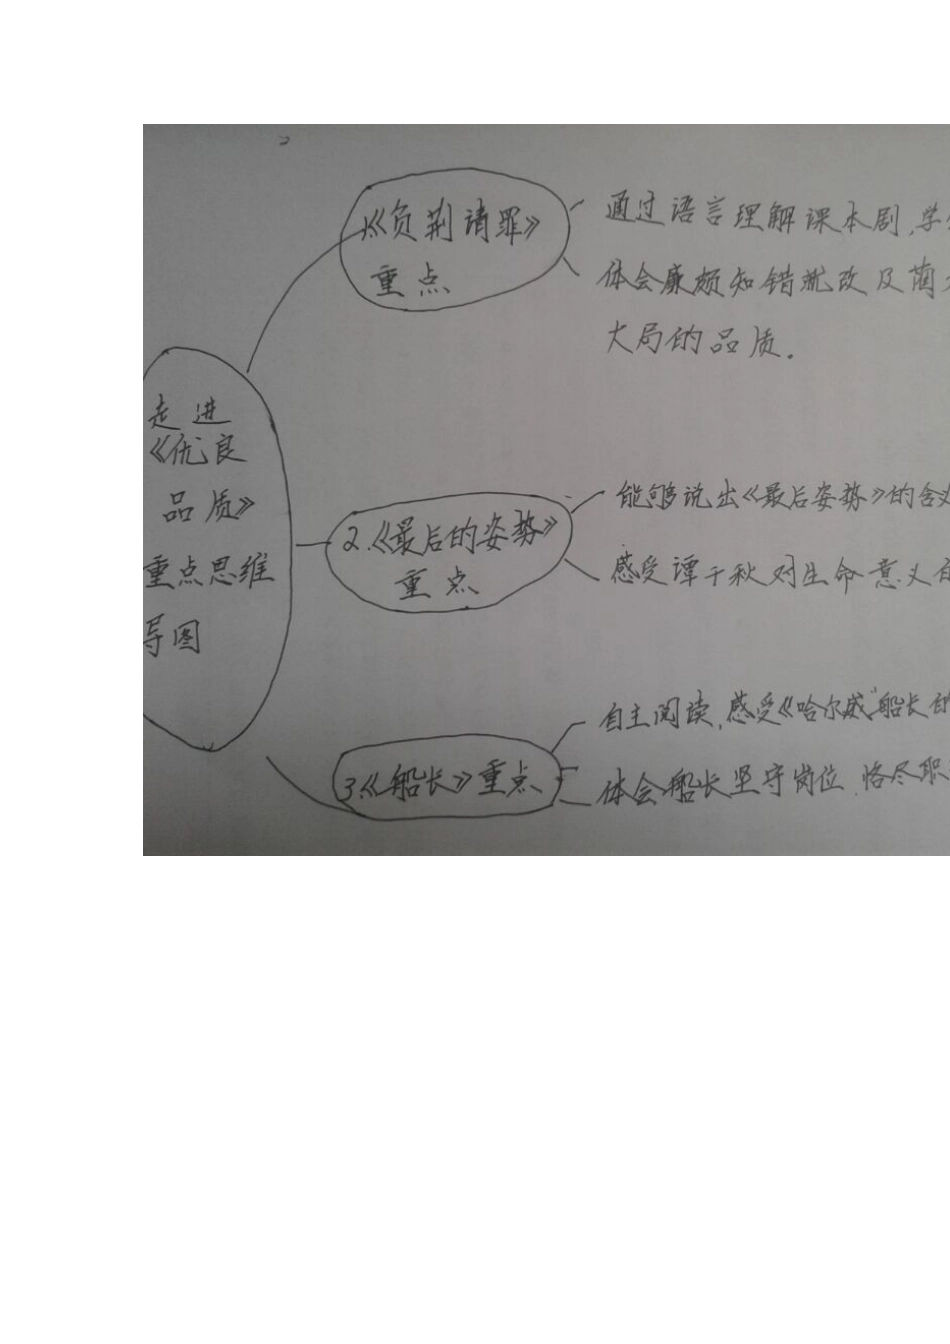 走进
《优良
品质》
重点思维
导图
1.《负荆请罪》
重点
通过语言理解课本剧,学
体会廉颇知错就改及蔺
大局的品质.
2.《最后的姿势》
重点
能够说出《最后姿势》的含义
感受谭千秋对生命意义
3.《船长》重点
自主阅读,感受《哈尔威"船长的
体会船长坚守岗位.恪尽职